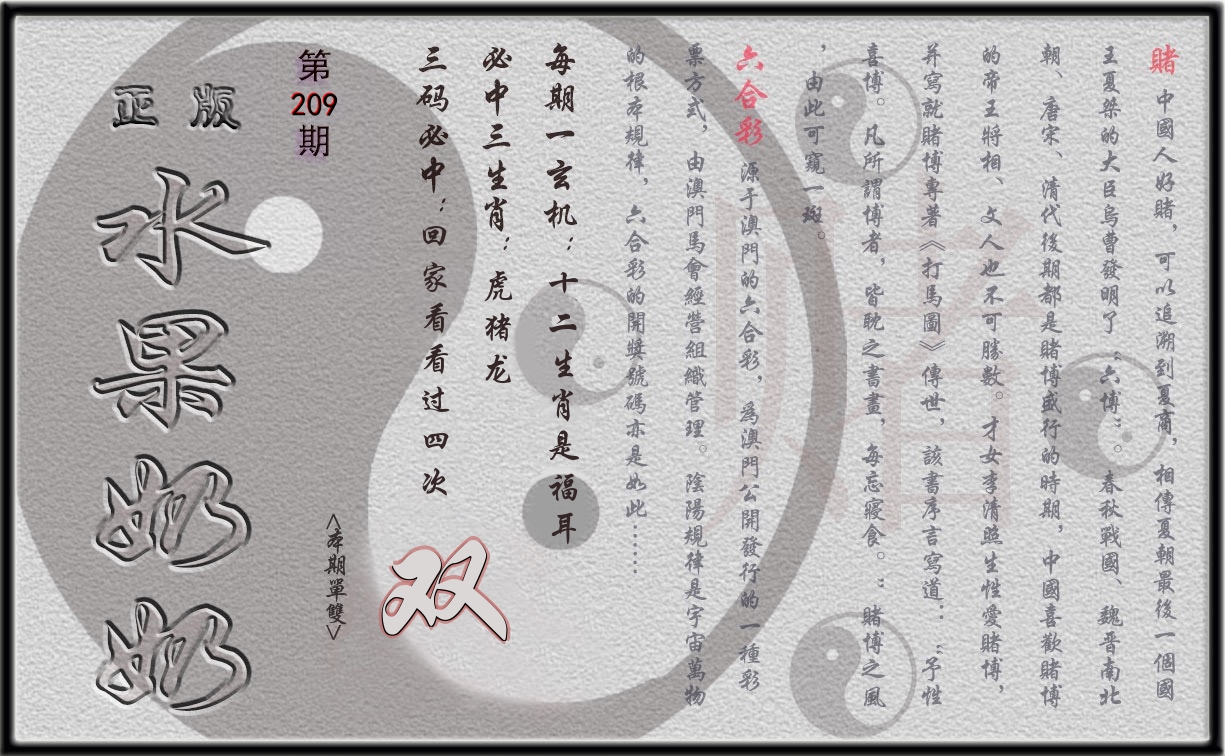 賭 中國人好賭，可以追溯到夏商，相傳夏朝最後一個國
王夏桀的大臣烏曹發明了“六博”。春秋戰國、魏晋南北
朝、唐宋、清代後期都是賭博盛行的時期，中國喜歡賭博
的帝王將相、文人也不可勝數。才女李清照生性愛賭博，
并寫就賭博專著《打馬圖》傳世，該書序言寫道：“予性
喜博。凡所謂博者，皆耽之書畫，每忘寢食。：賭博之風
，由此可窺一斑。
六合彩 源于澳門的六合彩，為澳門公開發行的一種彩
票方式，由澳門馬會經營組織管理。陰陽規律是宇宙萬物
的根本規律，六合彩的開獎號碼亦是如此……
賭
每期一玄机：十二生肖是福耳
必中三生肖：虎猪龙
三码必中：回家看看过四次
双
<本期單雙>
第
209
期
正版
水果奶奶